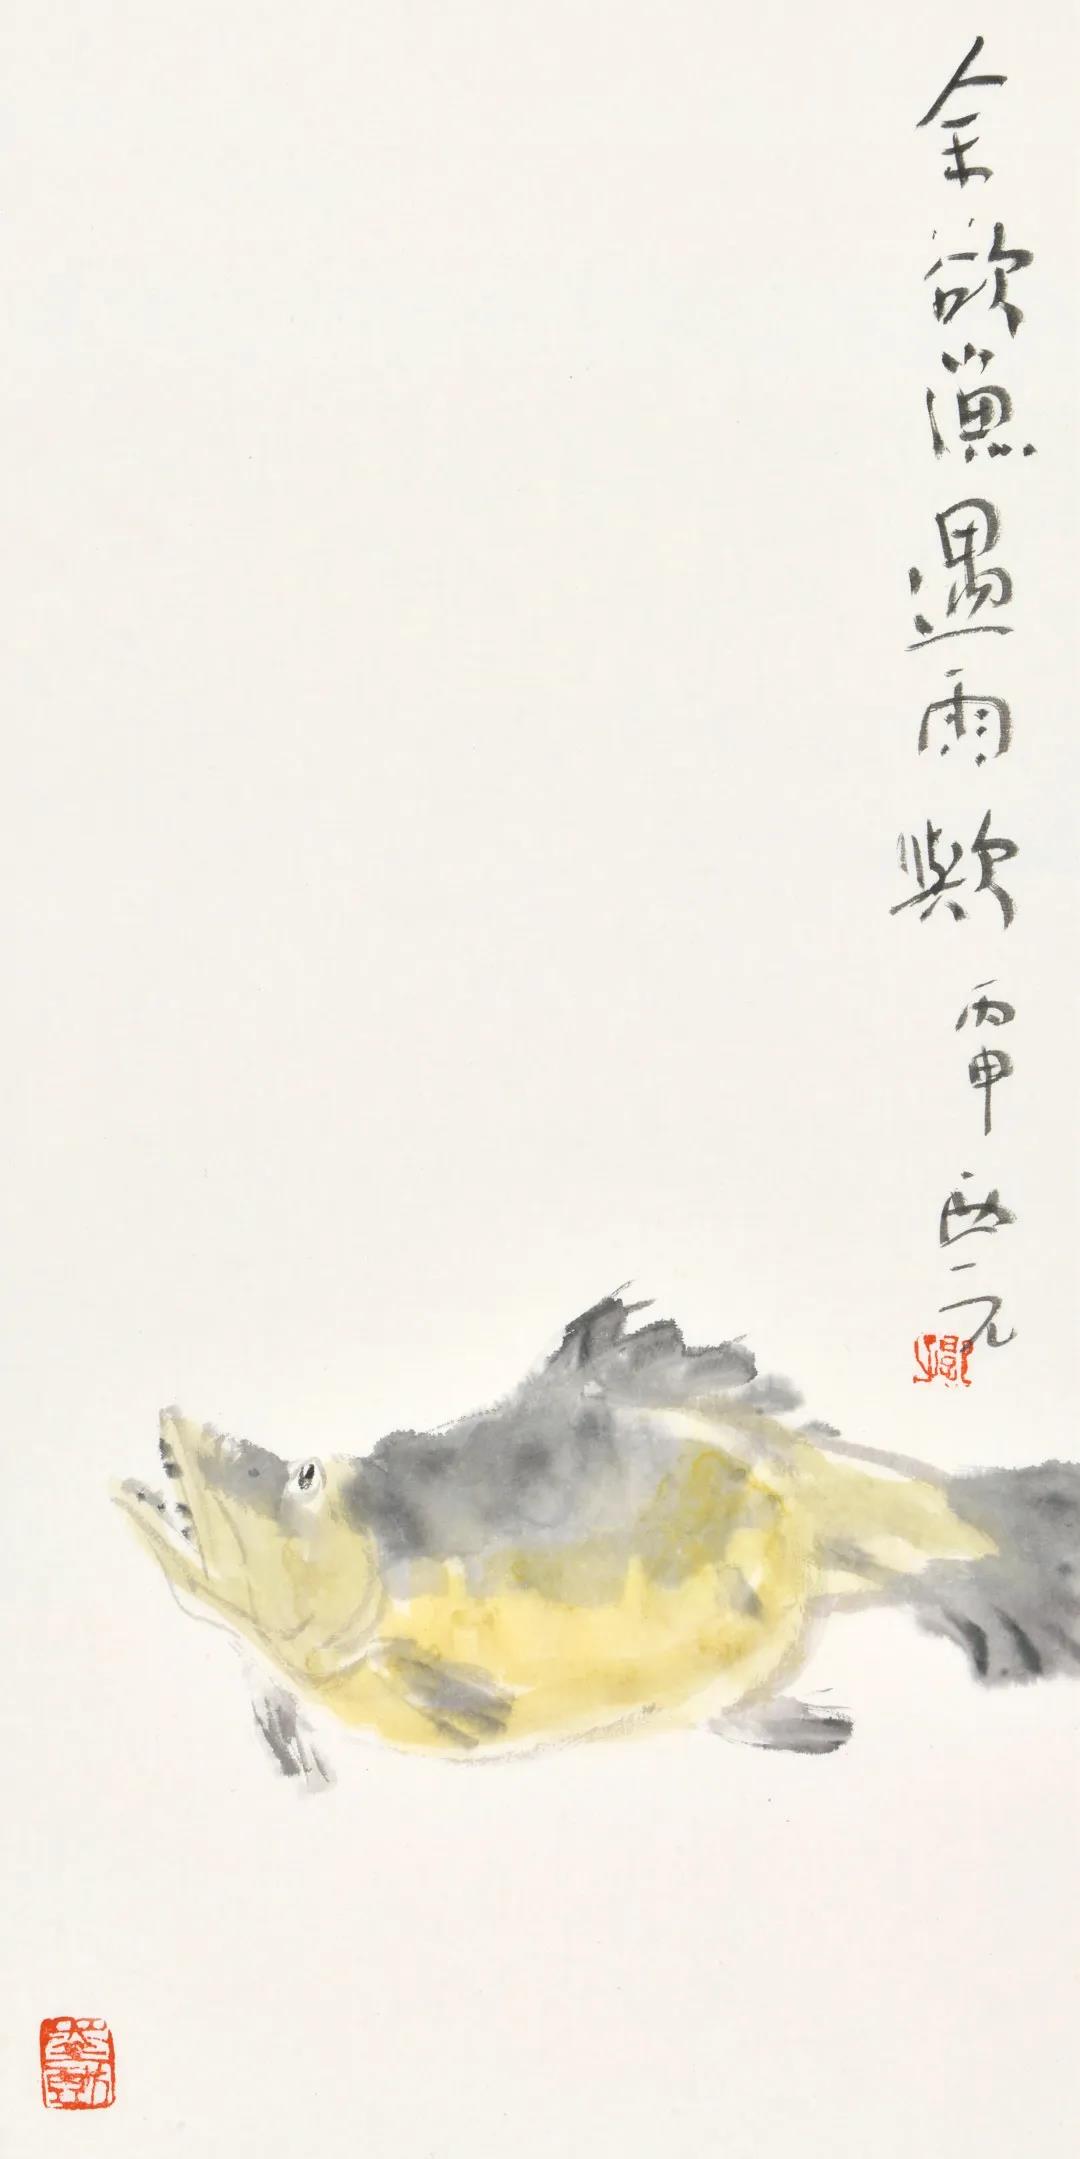 余欲漁遇雨歟 丙申 元